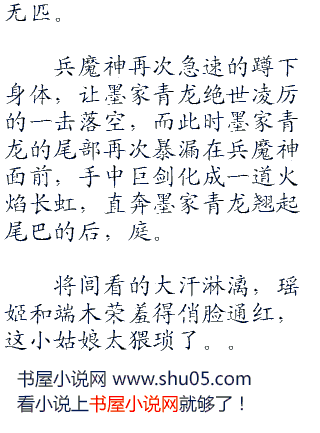 无匹。
兵魔神再次急速的蹲下
身体，让墨家青龙绝世凌厉
的一击落空，而此时墨家青
龙的尾部再次暴漏在兵魔神
面前，手中巨剑化成一道火
焰长虹，直奔墨家青龙翘起
尾巴的后，庭。
将闾看的大汗淋漓，瑶
姬和端木荣羞得俏脸通红，
这小姑娘太猥琐了。。
书屋小说网 www.shu05.com
看小说上书屋小说网就够了！